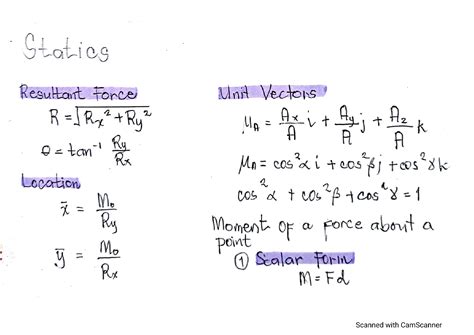 Statics
Resultant Force
R = √Rx² + Ry²
θ = tan⁻¹ Ry/Rx
Location
x̄ = Mo/Ry
ȳ = Mo/Rx
Unit Vectors
μA = Ax/A i + Ay/A j + Az/A k
μA = cos²α i + cos²β j + cos²γ k
cos²α + cos²β + cos²γ = 1
Moment of a force about a
point
① Scalar Form
M = Fd
Scanned with CamScanner